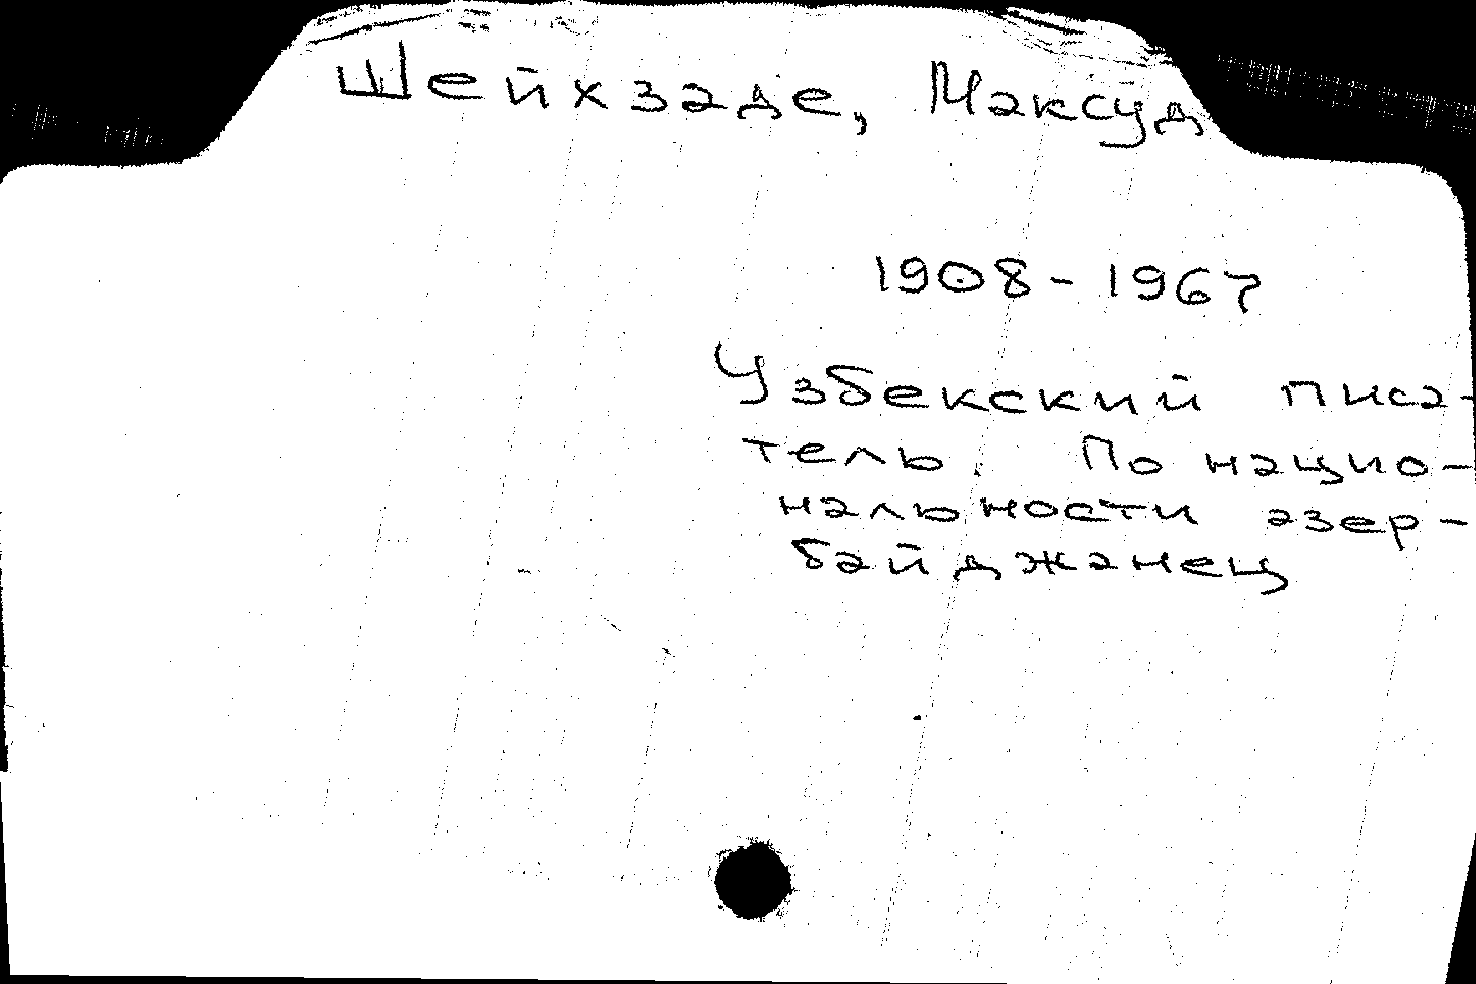 Шейхзаде, Максуд
1908-1967
Узбекский писа-
тель. По нацио-
нальности азер-
байджанец